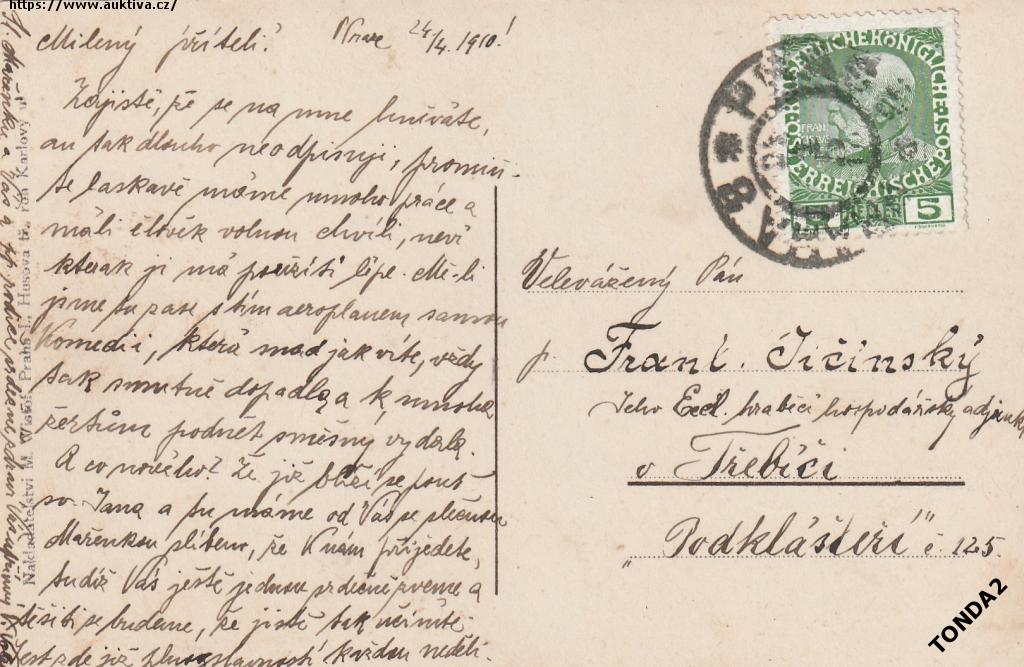 https://www.auktiva.cz/
Milený příteli! 24/4. 1910!
Zajisté, že se na mne hněváte,
an tak dlouho neodpisuji, promiň-
te laskavě máme mnoho práce a
máli člověk volnou chvíli, neví
kterak ji má použíti lépe. Mě-li
jsme tu zase s tím aeroplanem samou
Komedii, která snad jak víte, vždy
tak smutně dopadla a k mnoha
žertům podnět směšný vydala.
A co nového? Že již blíží se pouť
sv. Jana a tu máme od Vás se slečnou
Mařenkou slíbeno, že K nám přijedete,
tudíž Vás ještě jednou srdečně zveme a
těšiti se budeme, že jistě tak učiníte.
Jest zde již plno slavností každou neděli.
Mařenku a Vás a rodiče srdečně zdraví
Nakladatelství M. Praha I., Husova tř., roh Karlovy ul.
KAISERLICHE KÖNIGLICHE ÖSTERREICHISCHE POST
5 5
Velevážený Pán
p. Frant. Jičínský
Jeho Excl. hraběcí hospodářský adjunkt
v Třebíči
"Podklášteří" č. 125.
TONDA2